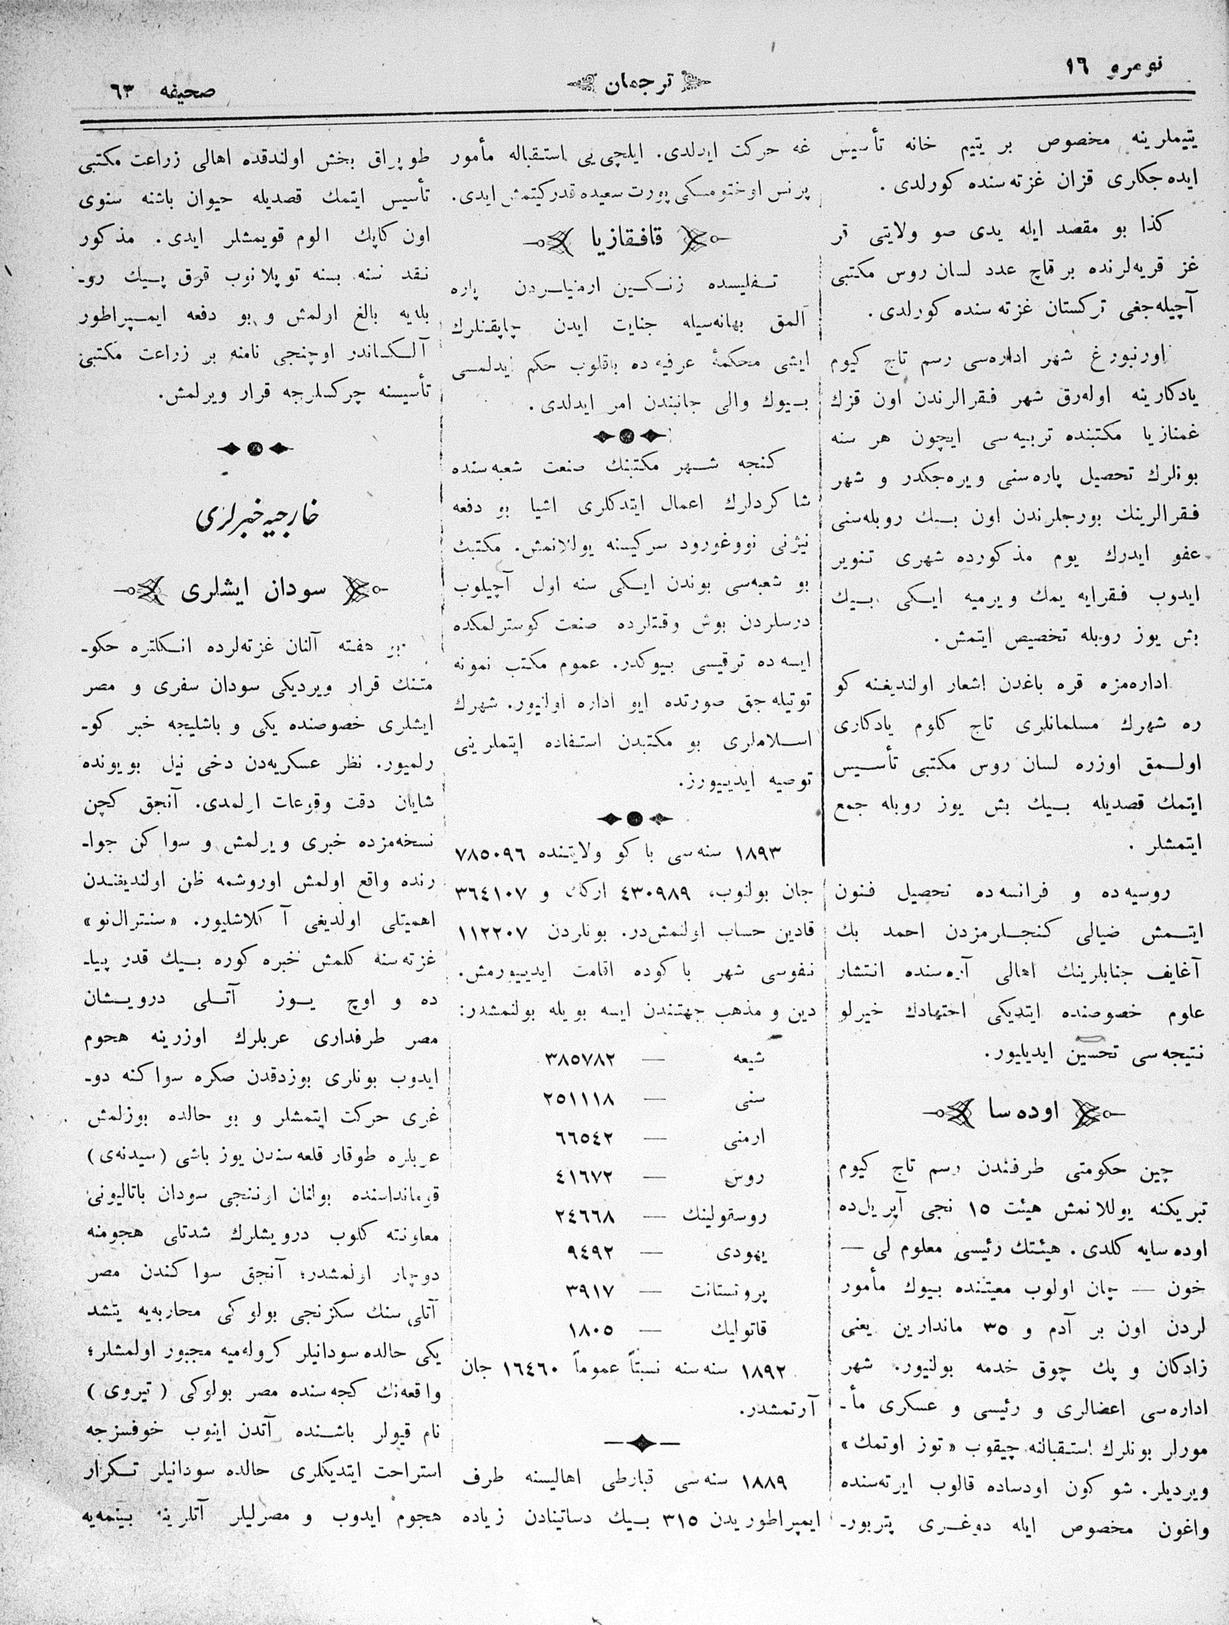 نومرو ١٦
ترجمان
صحيفه ٦٣
يتيملرينه مخصوص بر يتيم خانه تأسيس
ايده‌جكلرى قزان غزته‌سنده كورلدى.
كذا بو مقصد ايله يدى صو ولايتى قر
غز قريه‌لرنده بر قاچ عدد لسان روس مكتبى
آچيله‌جغى تركستان غزته‌سنده كورلدى.
اورنبورغ شهر اداره‌سى رسم تاج كيوم
يادكارينه اوله‌رق شهر فقرالرندن اون قزك
غمنازيا مكتبنده تربيه‌سى ايچون هر سنه
بونلرك تحصيل پاره‌سنى ويره‌جكدر و شهر
فقرالرينك بورجلرندن اون بيك روبله‌سنى
عفو ايدرك يوم مذكورده شهرى تنوير
ايدوب فقرايه يمك ويرميه ايكى بيك
بش يوز روبله تخصيص ايتمش.
اداره‌مزه قره باغدن اشعار اولنديغنه كو
ره شهرك مسلمانلرى تاج كلوم يادكارى
اولمق اوزره لسان روس مكتبى تأسيس
ايتمك قصديله بيك بش يوز روبله جمع
ايتمشلر.
روسيه‌ده و فرانسه‌ده تحصيل فنون
ايتمش ضيالى كنجلرمزدن احمد بك
آغايف جنابلرينك اهالى آره‌سنده انتشار
علوم خصوصنده ايتديكى اجتهادك خيرلو
نتيجه‌سى تحسين ايديليور.
اوده‌سا
چين حكومتى طرفندن رسم تاج كيوم
تبريكنه يوللانمش هيئت ١٥ نجى آپريل‌ده
اوده‌سايه كلدى. هيئتك رئيسى معلوم لى —
خون — چان اولوب معيتنده بيوك مأمور
لردن اون بر آدم و ٣٥ ماندارين يعنى
زادكان و پك چوق خدمه بولنيور. شهر
اداره‌سى اعضالرى و رئيسى و عسكرى مأ-
مورلر بونلرك استقبالنه چيقوب «توز اوتمك»
ويرديلر. شو كون اودساده قالوب ايرته‌سنده
واغون مخصوص ايله دوغرى پتربور-
غه حركت ايدلدى. ايلچى‌يى استقباله مأمور
پرنس اوختومسكى پورت سعيده قدر كيتمش ايدى.
قافقازيا
تفليسده زنكين ارمنيلردن پاره
آلمق بهانه‌سيله جنايت ايدن چاپقنلرك
ايشى محكمهٔ عرفيه‌ده باقلوب حكم ايدلمسى
بيوك والى جانبندن امر ايدلدى.
كنجه شهر مكتبنك صنعت شعبه‌سنده
شاكردلرك اعمال ايتدكلرى اشيا بو دفعه
نيژنى نووغورود سركيسنه يوللانمش. مكتبك
بو شعبه‌سى بوندن ايكى سنه اول آچيلوب
درسلردن بوش وقتلرده صنعت كوسترلمكده
ايسه‌ده ترقيسى بيوكدر. عموم مكتب نمونه
توتيله‌جق صورتده ايو اداره اولنيور. شهرك
اسلاملرى بو مكتبدن استفاده ايتملرينى
توصيه ايدييورز.
١٨٩٣ سنه‌سى باكو ولايتنده ٧٨٥٠٩٦
جان بولنوب، ٤٣٠٩٨٩ اركك و ٣٦٤١٠٧
قادين حساب اولنمش‌در. بونلردن ١١٢٢٠٧
نفوسى شهر باكوده اقامت ايدييورمش.
دين و مذهب جهتندن ايسه بويله بولنمشدر:
شيعه — ٣٨٥٧٨٢
سنى — ٢٥١١١٨
ارمنى — ٦٦٥٤٢
روس — ٤١٦٧٢
روسقولينك — ٢٤٦٦٨
يهودى — ٩٤٩٢
پروتستانت — ٣٩١٧
قاتوليك — ١٨٠٥
١٨٩٢ سنه‌سنه نسبتاً عموماً ١٦٤٦٠ جان
آرتمشدر.
١٨٨٩ سنه‌سى قبارطى اهاليسنه طرف
ايمپراطوريدن ٣١٥ بيك دساتينادن زياده
طوپراق بخش اولندقده اهالى زراعت مكتبى
تأسيس ايتمك قصديله حيوان باشنه سنوى
اون كاپك آلوم قويمشلر ايدى. مذكور
نقد سنه بسنه توپلانوب قرق بيك رو-
بلايه بالغ اولمش و بو دفعه ايمپراطور
آلكساندر اوچنجى نامنه بر زراعت مكتبى
تأسيسنه چركسلرجه قرار ويرلمش.
خارجيه خبرلرى
سودان ايشلرى
بو هفته آلنان غزته‌لرده انكلتره حكو-
متنك قرار ويرديكى سودان سفرى و مصر
ايشلرى خصوصنده يكى و باشليجه خبر كو-
رلميور. نظر عسكريه‌دن دخى نيل بويونده
شايان دقت وقوعات اولمدى. آنجق كچن
نسخه‌مزده خبرى ويرلمش و سواكن جوا-
رنده واقع اولمش اوروشمه ظن اولنديغندن
اهميتلى اولديغى آكلاشليور. «سنترال‌نو»
غزته‌سنه كلمش خبره كوره بيك قدر پيا-
ده و اوچ يوز آتلى درويشان
مصر طرفدارى عربلرك اوزرينه هجوم
ايدوب بونلرى بوزدقدن صكره سواكنه دو-
غرى حركت ايتمشلر و بو حالده بوزلمش
عربلره طوقار قلعه‌سندن يوز باشى (سيدنه‌ى)
قوماندا‌سنده بولنان اوننجى سودان باتاليونى
معاونته كلوب درويشلرك شدتلى هجومنه
دوچار اولمشدر؛ آنجق سواكندن مصر
آتلى‌سنك سكزنجى بولوكى محاربه‌يه يتشد
يكى حالده سودانيلر كرولەميه مجبور اولمشلر؛
واقعه‌نك كجه‌سنده مصر بولوكى (تيروى)
نام قيولر باشنده آتدن اينوب خوفسزجه
استراحت ايتديكلرى حالده سودانيلر تكرار
هجوم ايدوب و مصرليلر آتلرينه بينمه‌يه